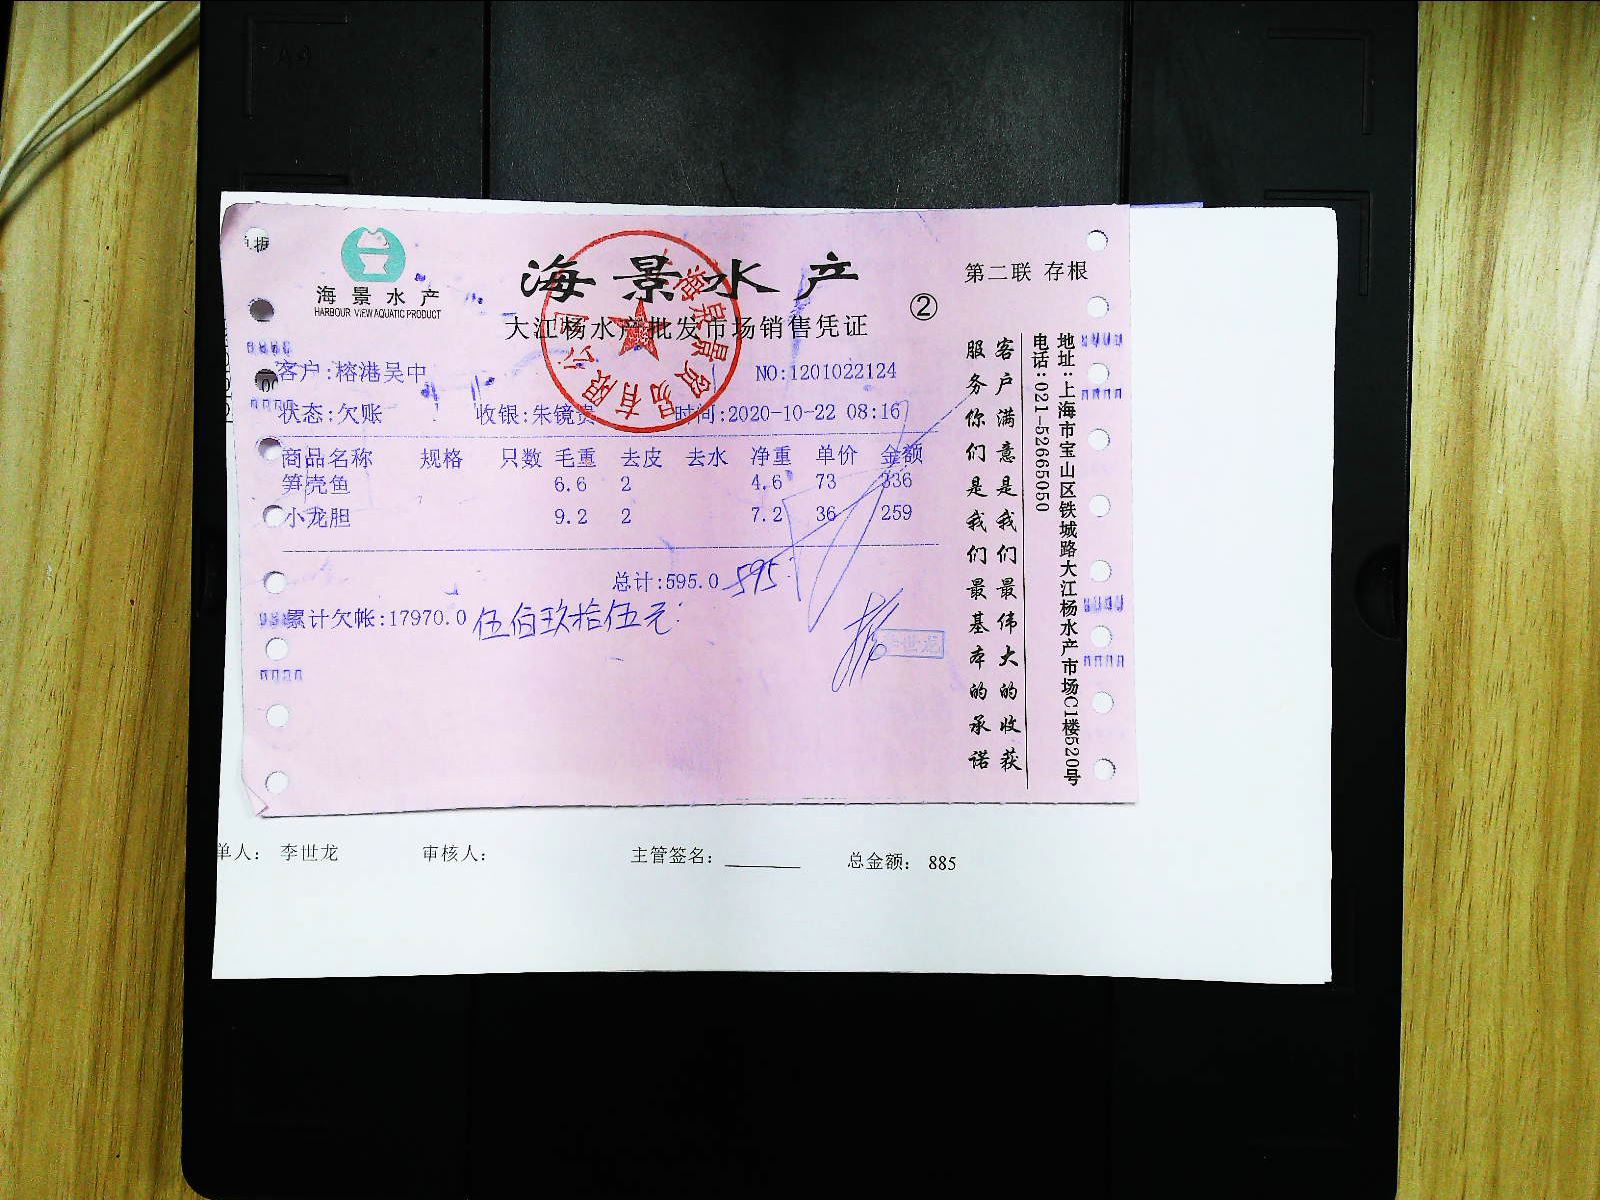 海景水产
HARBOUR VIEW AQUATIC PRODUCT
海景水产
大江杨水产批发市场销售凭证
②
第二联 存根
客户:榕港吴中
NO:1201022124
状态:欠账 收银:朱镜贵 时间:2020-10-22 08:16
商品名称 规格 只数 毛重 去皮 去水 净重 单价 金额
笋壳鱼 6.6 2 4.6 73 336
小龙胆 9.2 2 7.2 36 259
总计:595.0 595
累计欠帐:17970.0 伍佰玖拾伍元
客户满意是我们最伟大的收获
服务你们是我们最基本的承诺
地址:上海市宝山区铁城路大江杨水产市场C1楼520号
电话:021-52665050
单人: 李世龙 审核人: 主管签名: 总金额: 885